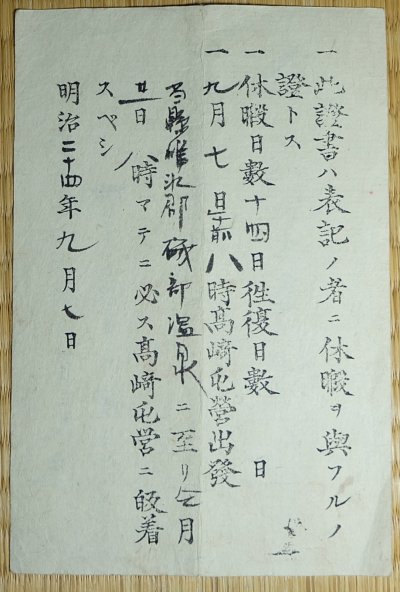 一此證書ハ表記ノ者ニ休暇ヲ與フルノ
證トス
一休暇日數十四日徃復日數 日
一九月七日午前八時髙﨑屯營出發
當縣碓氷郡磯部温泉ニ至リ仝月
廿一日八時マテニ必ス髙﨑屯営ニ皈着
スベシ
明治二十四年九月七日